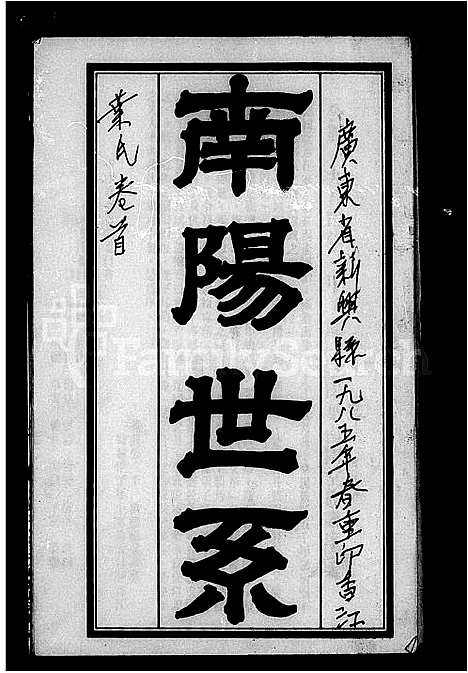 廣東省新興縣一九八五年春重印香江
南陽世系
葉氏卷首
FamilySearch